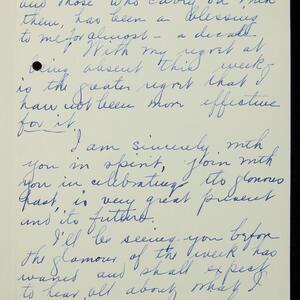 and those who carry on with
them, has been a blessing
to me for almost - a decade.
With my regret at
being absent this week
is the greater regret that I
have not been more effective
for it.
I am sincerely with
you in spirit, join with
you in celebrating its glorious
past, its very great present
and its future.
I'll be seeing you before
the glamour of the week has
waned and shall expect
to hear all about what I